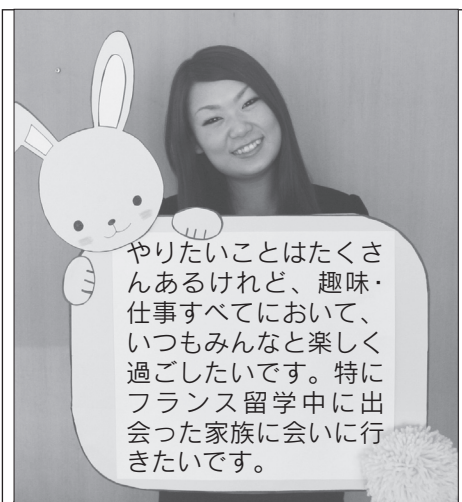 やりたいことはたくさ
んあるけれど、趣味・
仕事すべてにおいて、
いつもみんなと楽しく
過ごしたいです。特に
フランス留学中に出
会った家族に会いに行
きたいです。